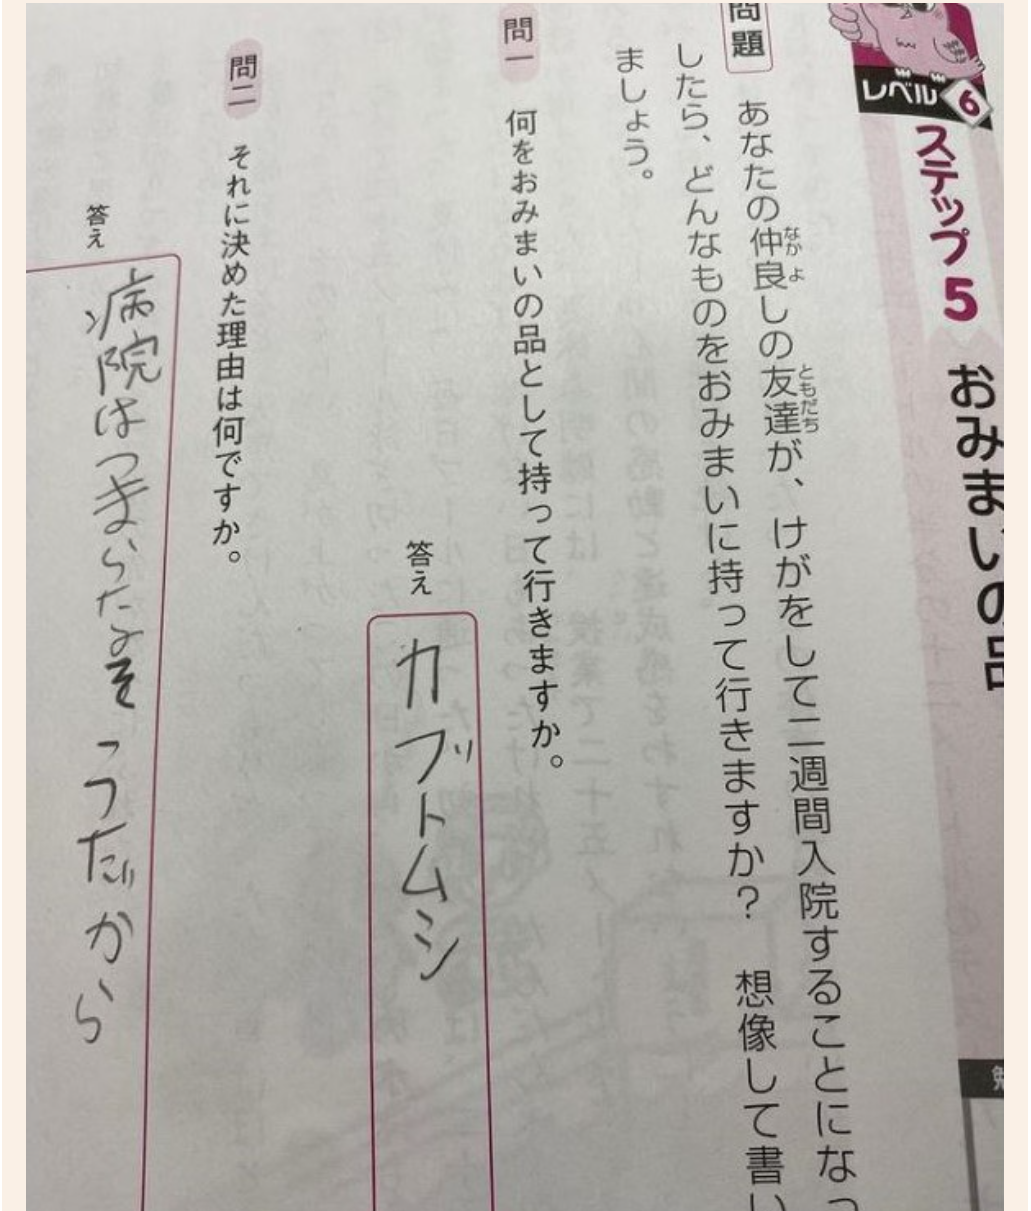 レベル6
ステップ5 おみまいの品
問題 あなたの仲良しの友達が、けがをして二週間入院することになっ
したら、どんなものをおみまいに持って行きますか? 想像して書い
ましょう。
なかよ
ともだち
問一 何をおみまいの品として持って行きますか。
答え カブトムシ
問二 それに決めた理由は何ですか。
答え 病院はつまらなそうだから